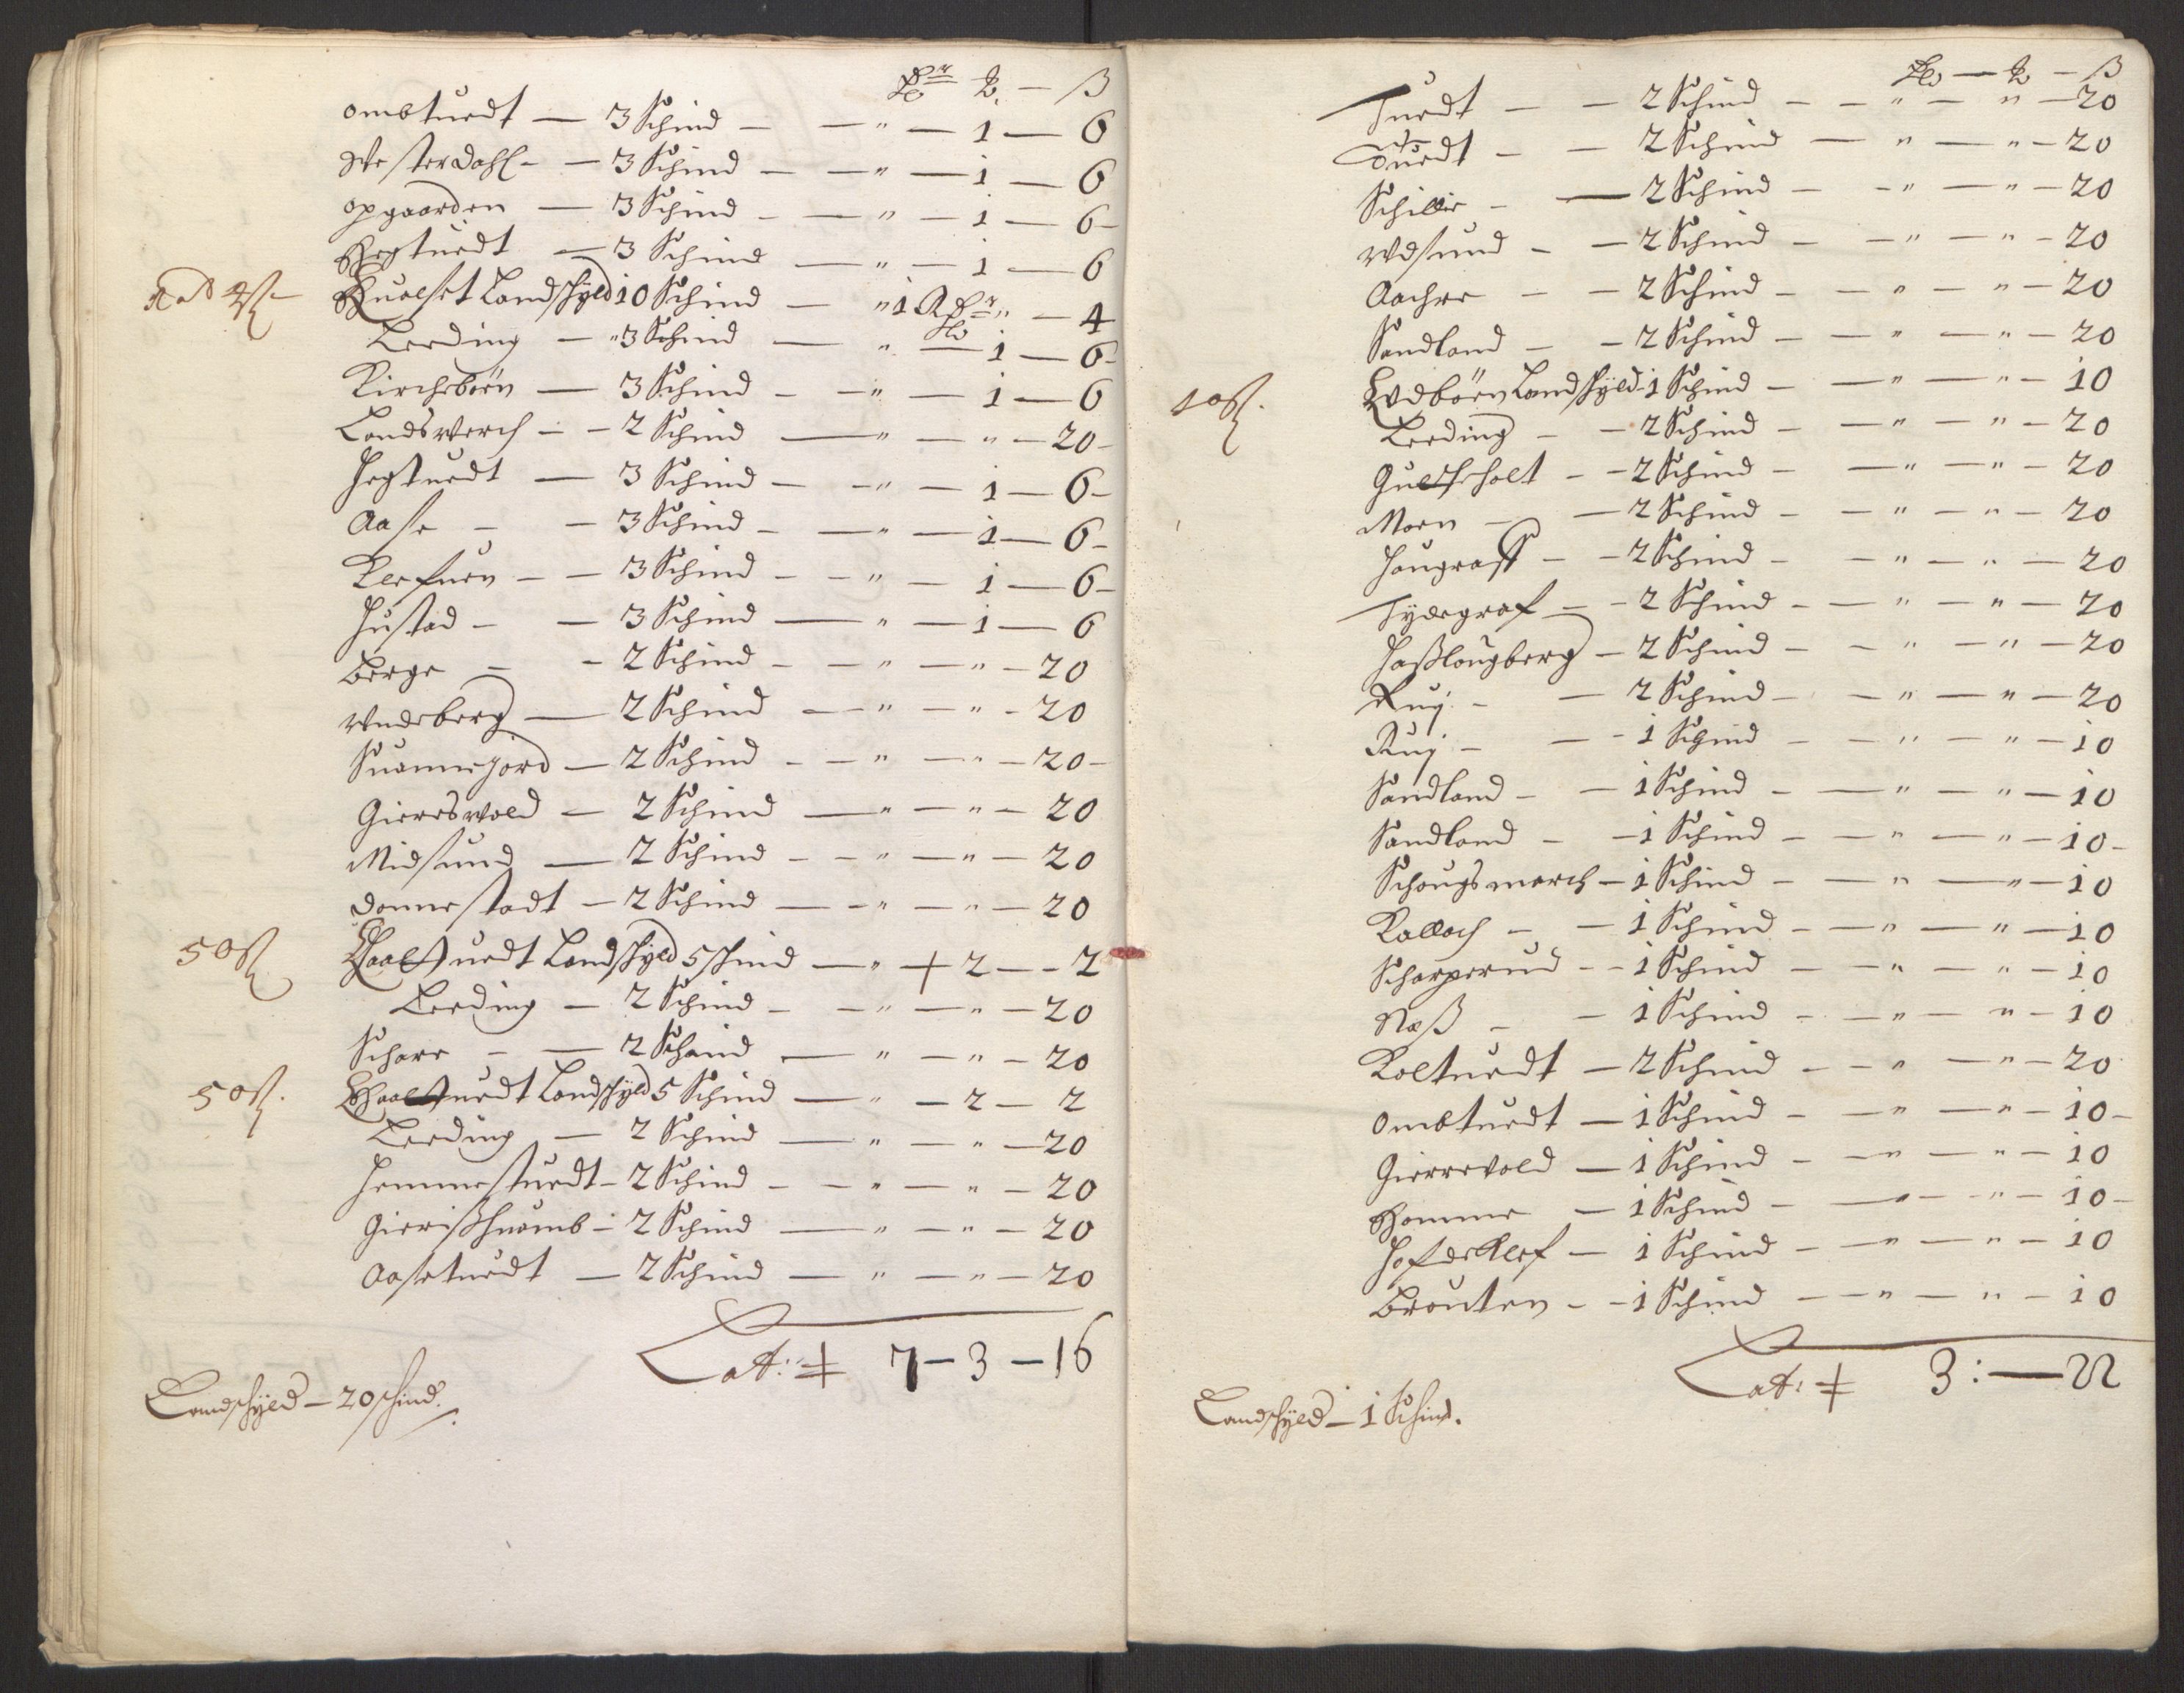 Rdr — ß
ombtuedt — 3 Schind — — " — 1 — 6
Westerdahl — — 3 Schind — — " — 1 — 6
opgaarden — 3 Schind — — " — 1 — 6 —
Hegtuedt — 3 Schind — " — 1 — 6
Hualset Landschÿld 10 Schind — " 1 Rdr " — 4
Leeding — " 3 Schind — " — 1 — 6 —
Kirchebøen — 3 Schind — — " — 1 — 6
Landswerch — — 2 Schind — " — " — 20 —
Hegtuedt — 3 Schind — — " — 1 — 6 —
Aase — — 3 Schind — — " — 1 — 6 —
Klefuen — — 3 Schind — — " — 1 — 6 —
Hustad — — 3 Schind — " — 1 — 6
Berge — — 2 Schind — — " — " — 20
Vndeberg — 2 Schind — " — " — 20
Suannejord — 2 Schind — — " — " — 20 —
Gierswold — 2 Schind — " — " — 20
Midsund — 2 Schind — — " — " — 20
Donnestadt — 2 Schind — — " — " — 20
50 ß
Landschÿld 5 schind — " — 2 — — 2
Leeding — 2 Schind — — " — " — 20
Schare — — 2 Schind — " — " — 20
50 ß.
Landschÿld 5 Schind — " — 2 — 2
Leeding — 2 Schind — " — " — 20
Hemmestuedt — 2 Schind — — " — " — 20
Gierißhuamb — 2 Schind — " — " — 20
Aasetuedt — 2 Schind — " — " — 20
Lat: 7 — 3 — 16
Landschÿld — 20 schind.
— ß
Tuedt — — 2 Schind — — " — " — 20
Tuedt — — 2 Schind — " — " — 20
Schillie — — 2 Schind — — " — " — 20
Vdsund — — 2 Schind — — " — " — 20
Aachre — — 2 Schind — — " — " — 20
Sandland — — 2 Schind — — " — " — 20
10 ß.
Vdbøen Landschÿld 1 Schind — — " — " — 10
Leeding — — 2 Schind — — " — " — 20
Gulseholt — — 2 Schind — — " — " — 20
Moen — — 2 Schind — — " — " — 20
Haugraff — — 2 Schind — — " — " — 20
Tydegraf — — 2 Schind — — " — " — 20
Haßlougberg — 2 Schind — — " — " — 20
Ruj — — 2 Schind — — " — " — 20
Ruj — — 1 Schind — — " — " — 10
Sandland — — 1 Schind — — " — " — 10
Sandland — — 1 Schind — — " — " — 10 —
Schougsmarch — 1 Schind — — " — " — 10
Kallach — — 1 Schind — — " — " — 10
Scharperud — — 1 Schind — — " — " — 10
Næß — — 1 Schind — — " — " — 10
Koltuedt — 2 Schind — — " — " — 20
Ombtuedt — 1 Schind — — " — " — 10 —
Gierrevold — 1 Schind — — " — " — 10
Homme — 1 Schind — — " — " — 10 —
Hofdeklef — 1 Schind — — " — " — 10
Brouten — — 1 Schind — — " — " — 10
Lat: 3: — 22
Landschÿld — 1 Schind.